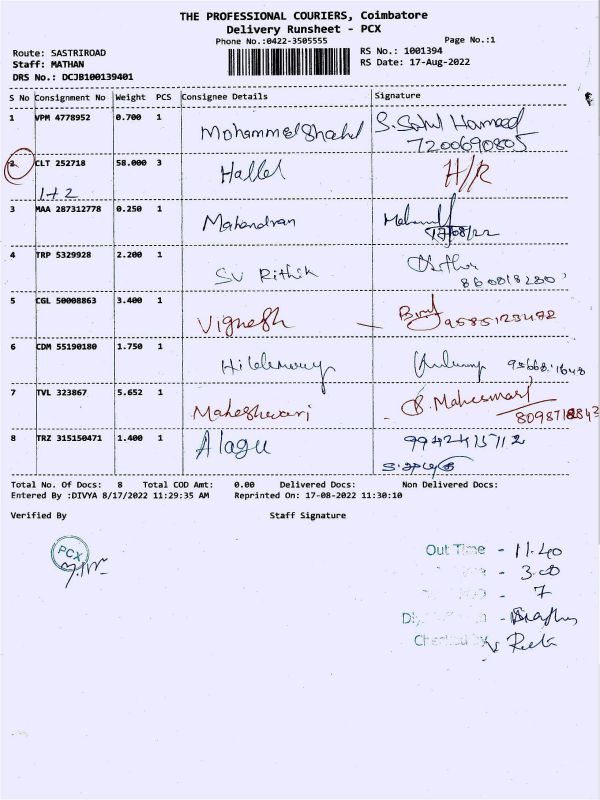 THE PROFESSIONAL COURIERS, Coimbatore
Delivery Runsheet - PCX
Phone No.:0422-3505555
Page No.:1
Route: SASTRIROAD
RS No.: 1001394
Staff: MATHAN
RS Date: 17-Aug-2022
DRS No.: DCJB100139401
S No Consignment No Weight PCS Consignee Details Signature
1 VPM 4778952 0.700 1 Mohammed Shahul S. Sahul Hameed
7200690805
2 CLT 252718 58.000 3 Hallel H/R
1+2
3 MAA 287312778 0.250 1 Mahendran
17/08/22
4 TRP 5329928 2.200 1 SV Rithik
5 CGL 50008863 3.400 1 Vignesh 9585123472
6 CDM 55190180 1.750 1
7 TVL 323867 5.652 1 Maheshwari B. Maheswari
8 TRZ 315150471 1.400 1 Alagu 9942415712
Total No. Of Docs: 8 Total COD Amt: 0.00 Delivered Docs: Non Delivered Docs:
Entered By :DIVYA 8/17/2022 11:29:35 AM Reprinted On: 17-08-2022 11:30:10
Verified By Staff Signature
PCX
Out Time - 11.40
- 3.00
- 7
Checked by